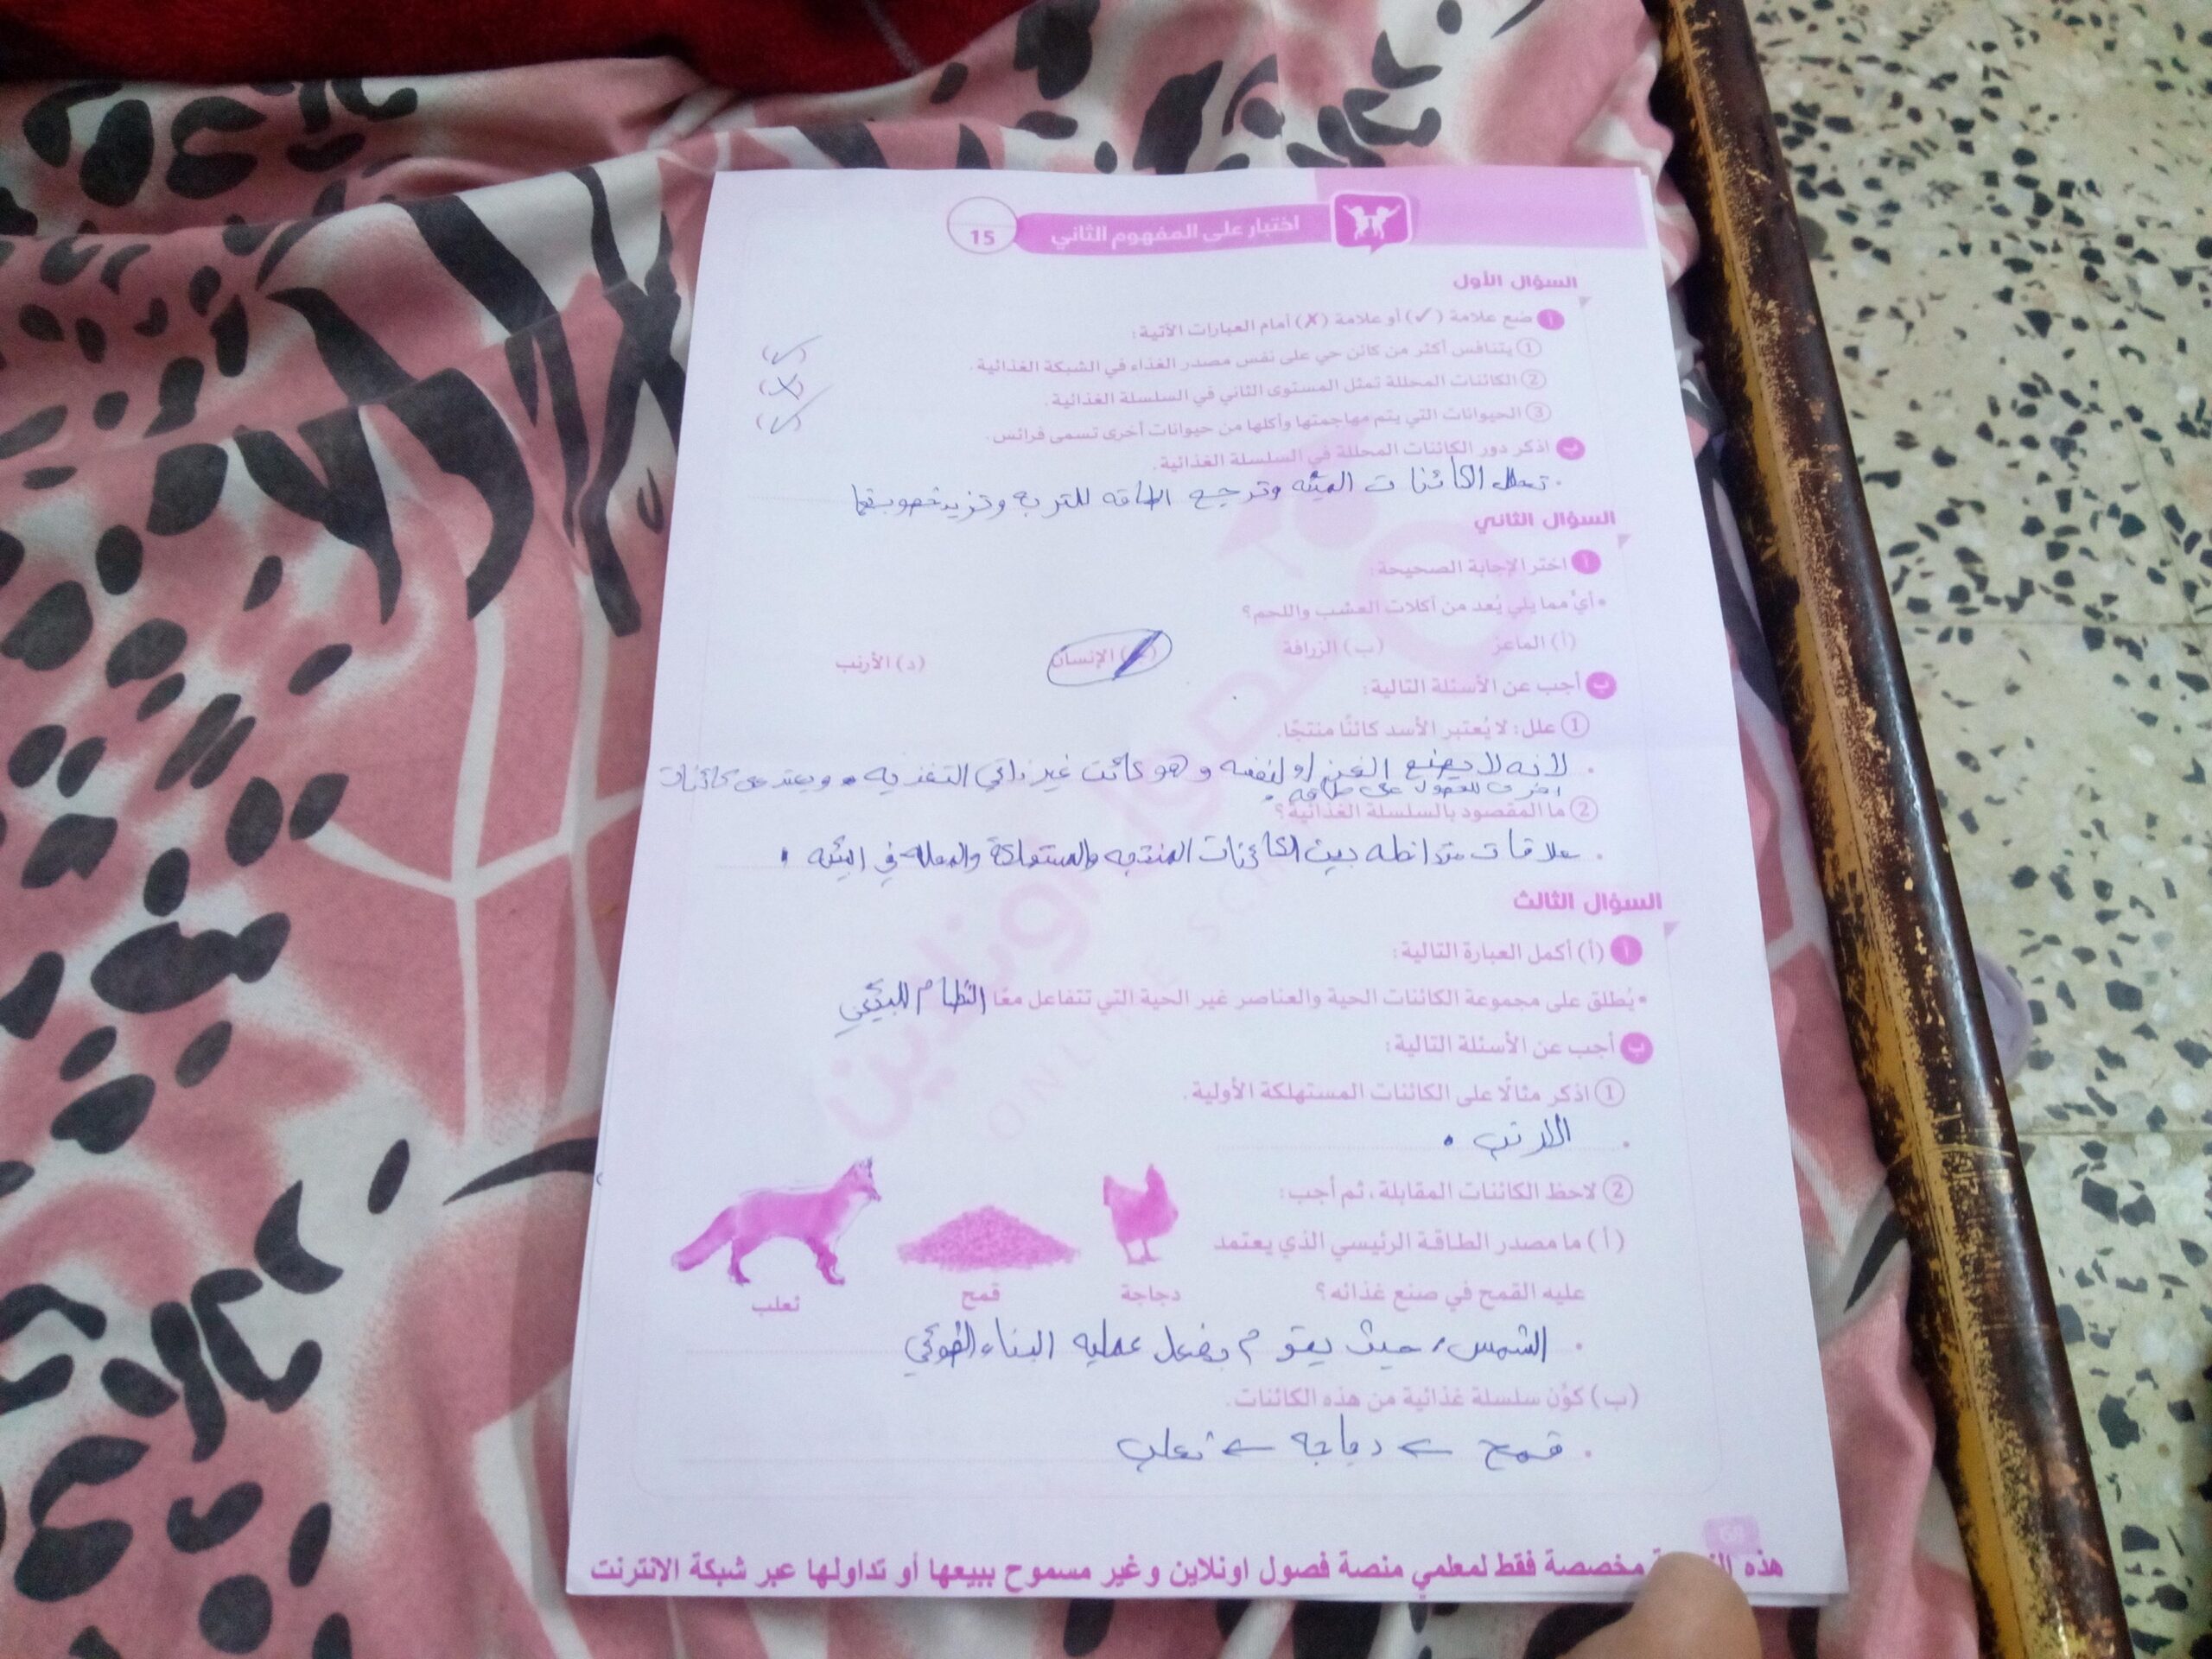 اختبار على المفهوم الثاني
15
السؤال الأول
أ ضع علامة (✓) أو علامة (✗) أمام العبارات الآتية:
① يتنافس أكثر من كائن حي على نفس مصدر الغذاء في الشبكة الغذائية. (✓)
② الكائنات المحللة تمثل المستوى الثاني في السلسلة الغذائية. (✗)
③ الحيوانات التي يتم مهاجمتها وأكلها من حيوانات أخرى تسمى فرائس. (✓)
ب اذكر دور الكائنات المحللة في السلسلة الغذائية.
تحلل الكائنات الميته وترجع الطاقه للتربه وتزيد خصوبتها
السؤال الثاني
أ اختر الإجابة الصحيحة:
• أيٌّ مما يلي يُعد من آكلات العشب واللحم؟
(أ) الماعز (ب) الزرافة (ج) الإنسان (د) الأرنب
ب أجب عن الأسئلة التالية:
① علل: لا يُعتبر الأسد كائنًا منتجًا.
لانه لا يصنع الغذاء لنفسه وهو كائن غير ذاتي التغذيه ويعتمد على كائنات
اخرى للحصول على طاقه.
② ما المقصود بالسلسلة الغذائية؟
علاقات متداخله بين الكائنات المنتجه والمستهلكة والمحلله في البيئه
السؤال الثالث
أ (أ) أكمل العبارة التالية:
• يُطلق على مجموعة الكائنات الحية والعناصر غير الحية التي تتفاعل معًا النظام البيئي
ب أجب عن الأسئلة التالية:
① اذكر مثالًا على الكائنات المستهلكة الأولية.
الارنب.
② لاحظ الكائنات المقابلة، ثم أجب:
(أ) ما مصدر الطاقة الرئيسي الذي يعتمد
عليه القمح في صنع غذائه؟
دجاجة قمح ثعلب
الشمس، حيث يقوم بفعل عمليه البناء الضوئي
(ب) كوّن سلسلة غذائية من هذه الكائنات.
قمح ← دجاجه ← ثعلب
هذه مخصصة فقط لمعلمي منصة فصول اونلاين وغير مسموح ببيعها أو تداولها عبر شبكة الانترنت
فصول أونلاين